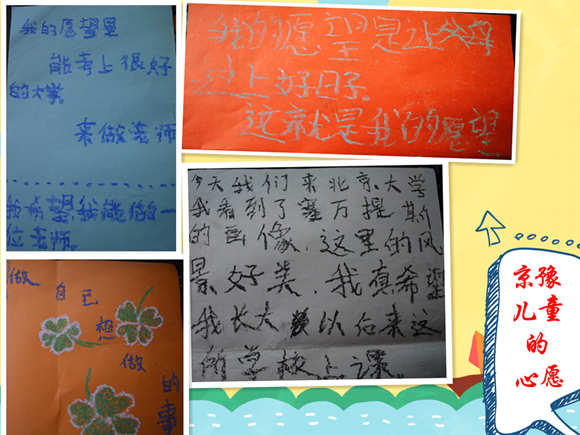 我的愿望是
能考上很好
的大学。
来做老师
我希望我能做一
位老师。
我的愿望是让父母
过上好日子。
这就是我的愿望
今天我们来北京大学
我看到了塞万提斯
的画像。这里的风
景好美,我真希望
我长大以后来这
的学校上课。
做
自己
想
做
的事
京豫
儿童
的
心愿